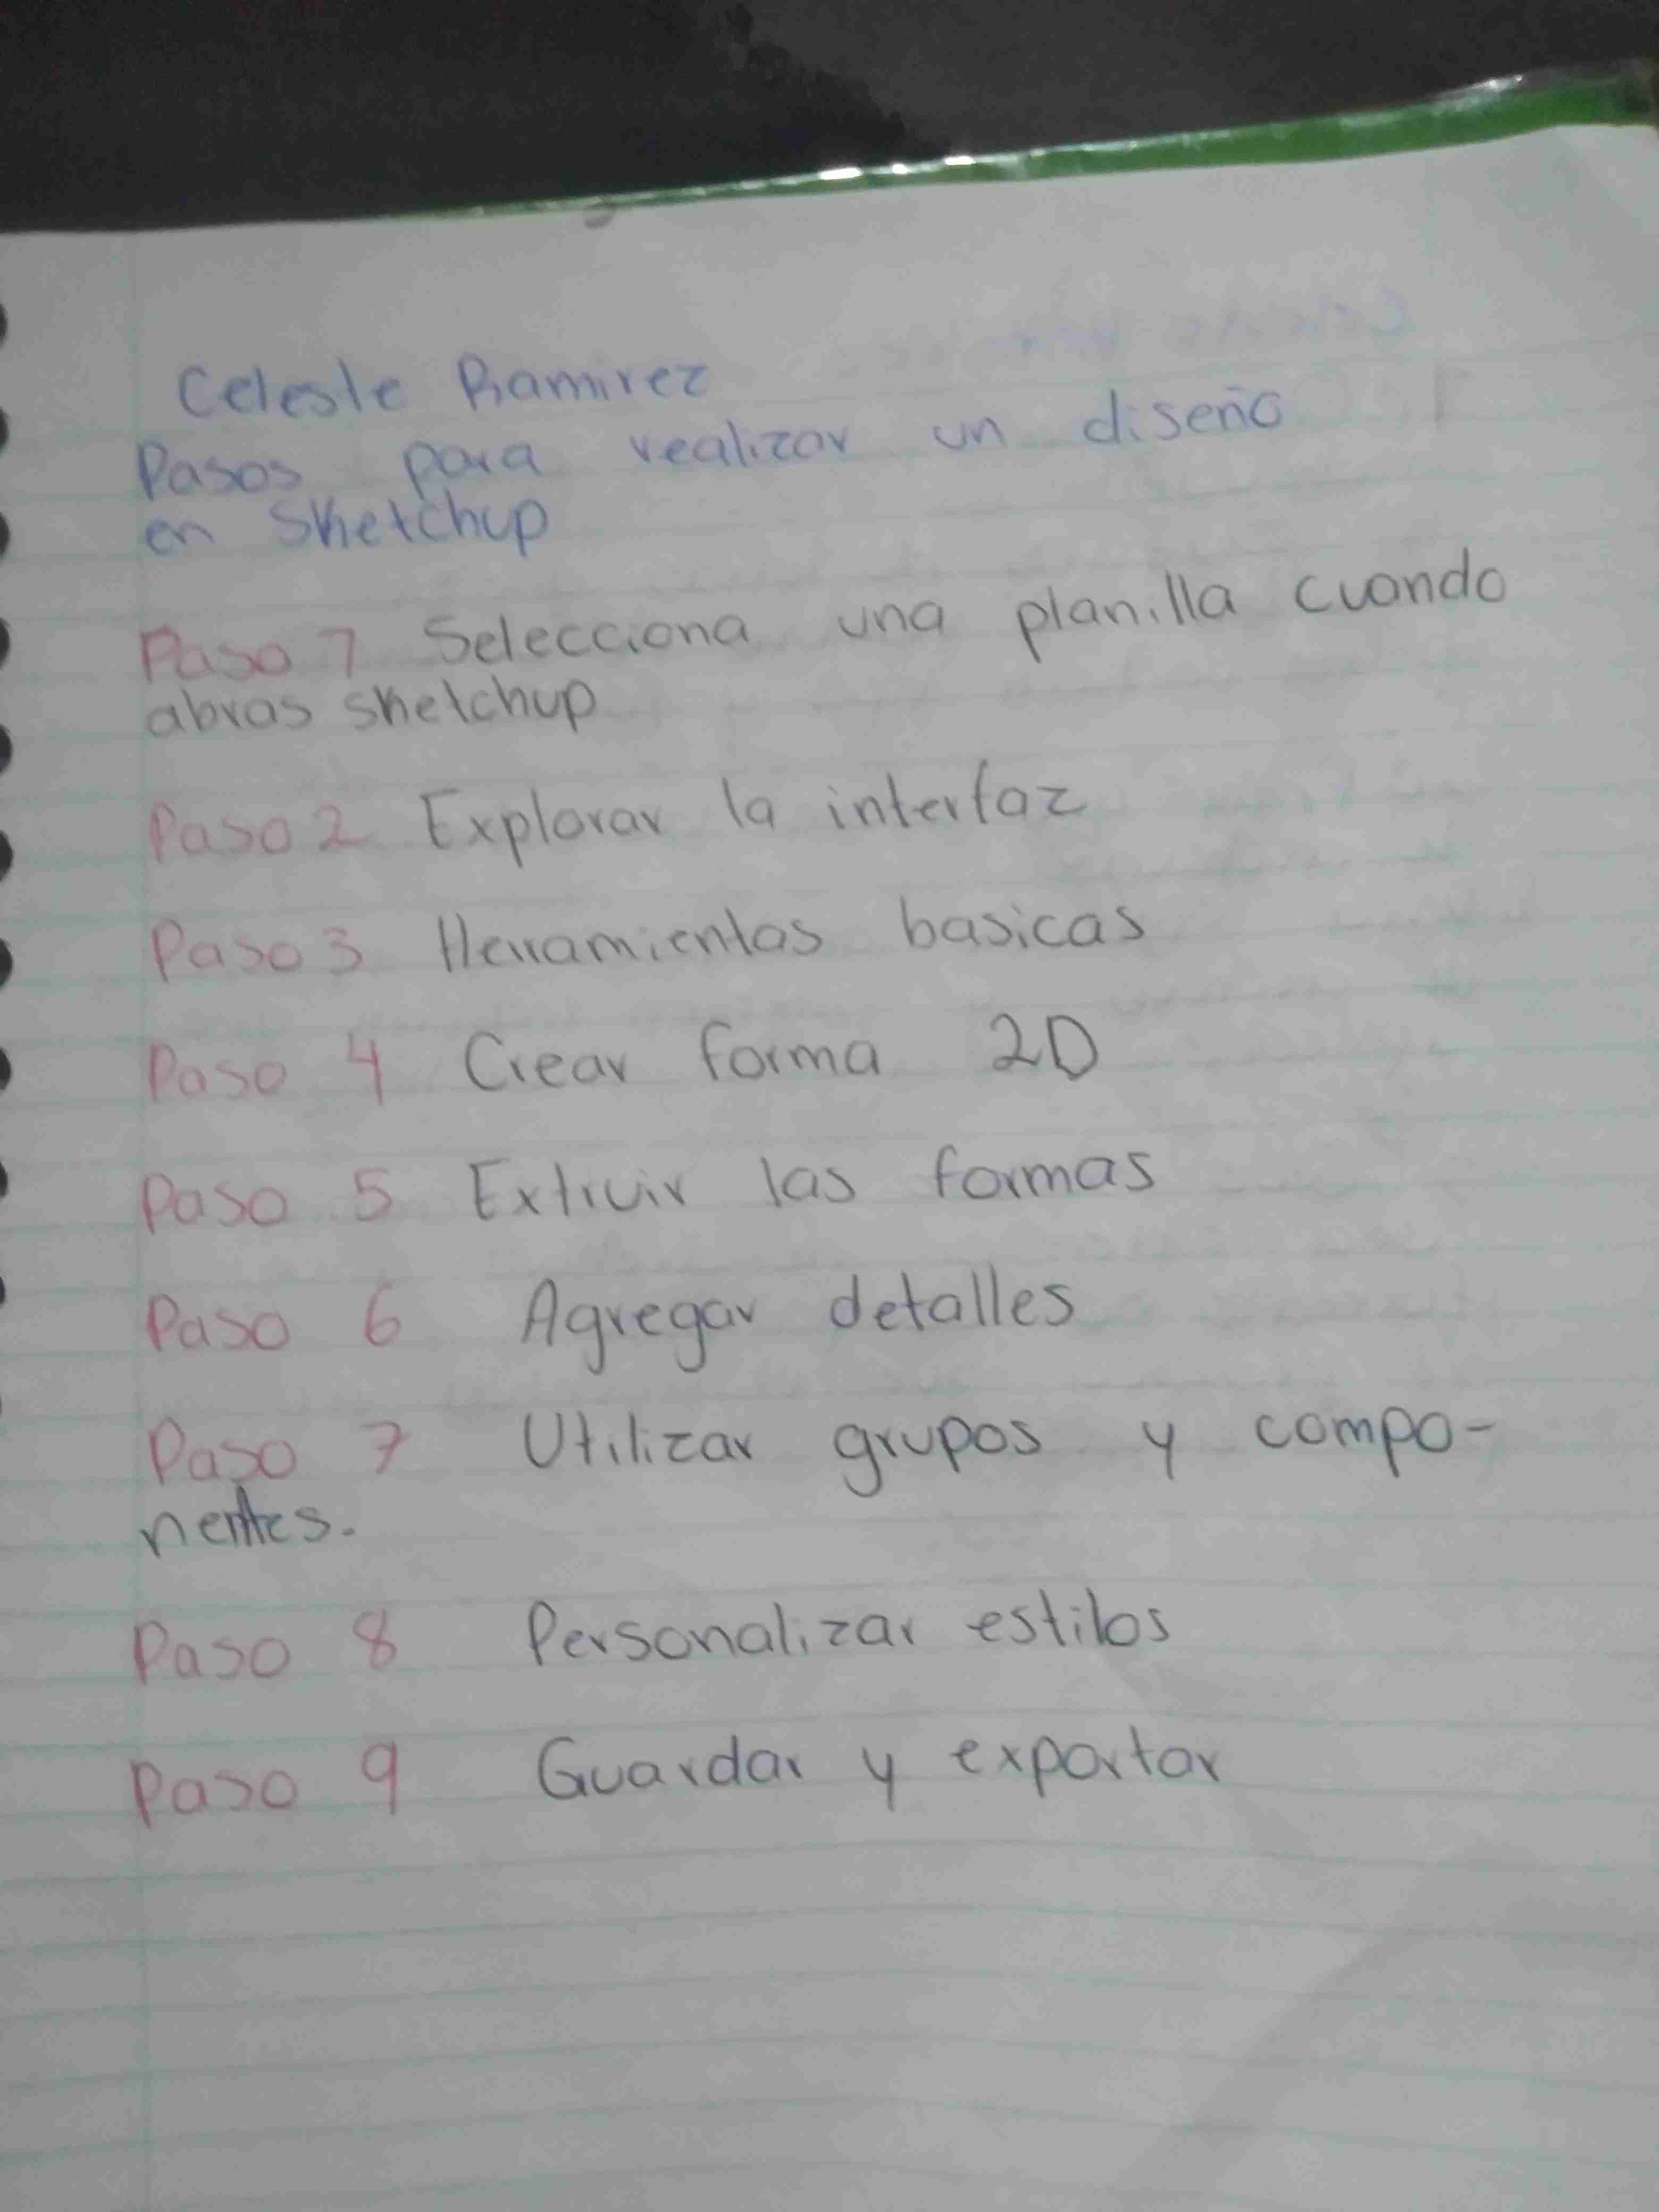 Celeste Ramirez
Pasos para realizar un diseño
en Sketchup
Paso 1 Selecciona una planilla cuando
abras sketchup
Paso 2 Explorar la interfaz
Paso 3 Herramientas basicas
Paso 4 Crear forma 2D
Paso 5 Extruir las formas
Paso 6 Agregar detalles
Paso 7 Utilizar grupos y compo-
nentes.
Paso 8 Personalizar estilos
Paso 9 Guardar y exportar